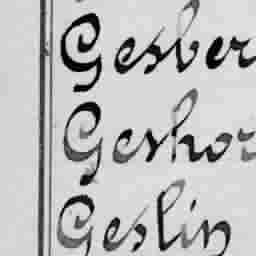 Gesber
Geshor
Geslin